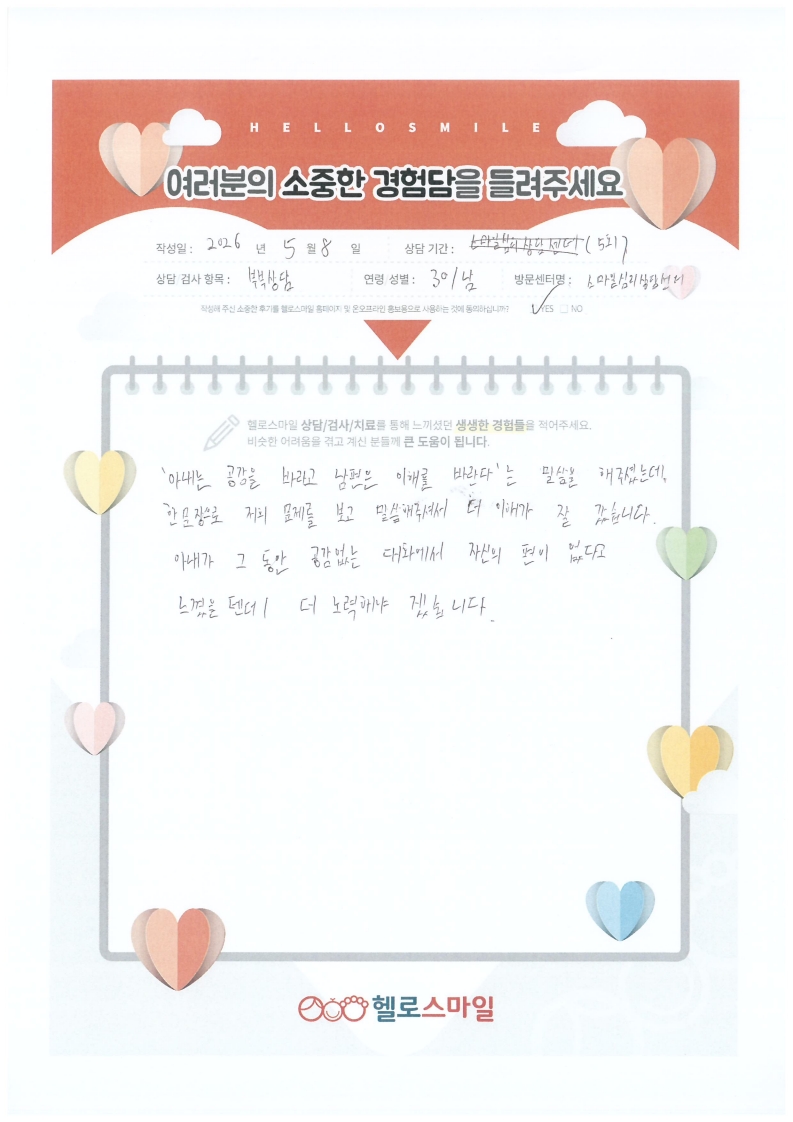 HELLOSMILE
여러분의 소중한 경험담을 들려주세요
작성일 : 2026 년 5 월 8 일 상담 기간 : 스마일심리상담센터 (5회)
상담 검사 항목 : 부부상담 연령 성별 : 30/남 방문센터명 : 스마일심리상담센터
작성해 주신 소중한 후기를 헬로스마일 홈페이지 및 온오프라인 홍보용으로 사용하는 것에 동의하십니까? ✓YES □ NO
헬로스마일 상담/검사/치료를 통해 느끼셨던 생생한 경험들을 적어주세요.
비슷한 어려움을 겪고 계신 분들께 큰 도움이 됩니다.
'아내는 공감을 바라고 남편은 이해를 바란다'는 말씀을 해주셨는데,
한문장으로 저희 문제를 보고 말씀해주셔서 더 이해가 잘 갔습니다.
아내가 그 동안 공감없는 대화에서 자신의 편이 없다고
느꼈을 텐데 더 노력해야 겠습니다.
헬로스마일